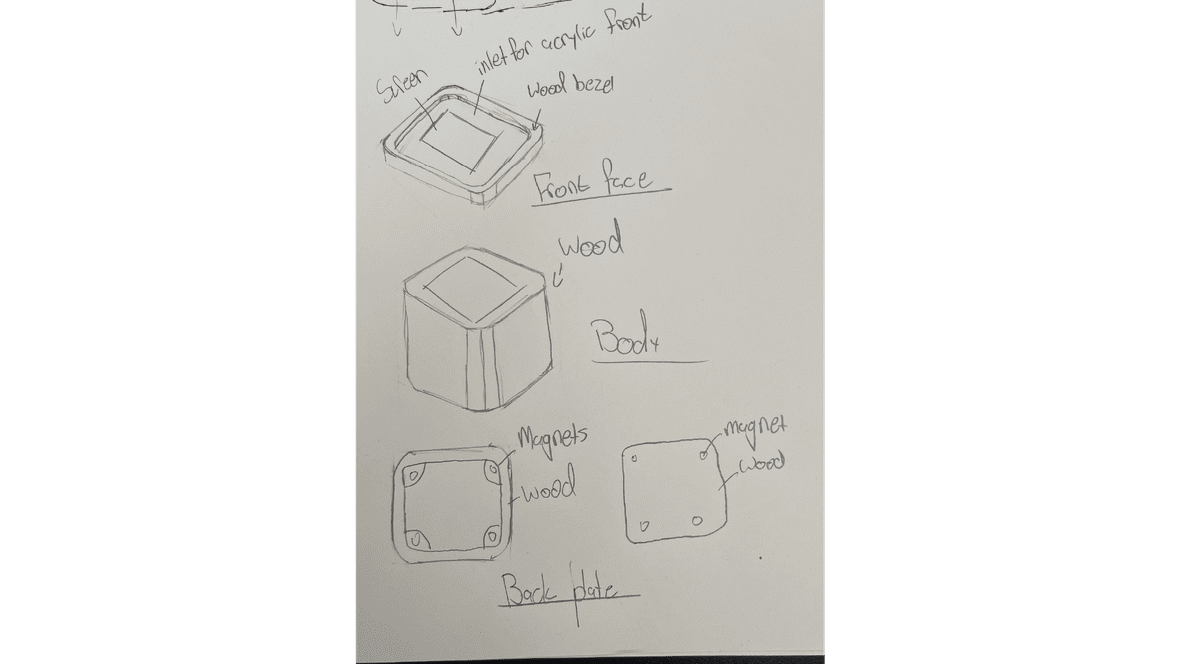 Screen
inlet for acrylic front
wood bezel
Front face
wood
Body
Magnets
wood
magnet
wood
Back plate